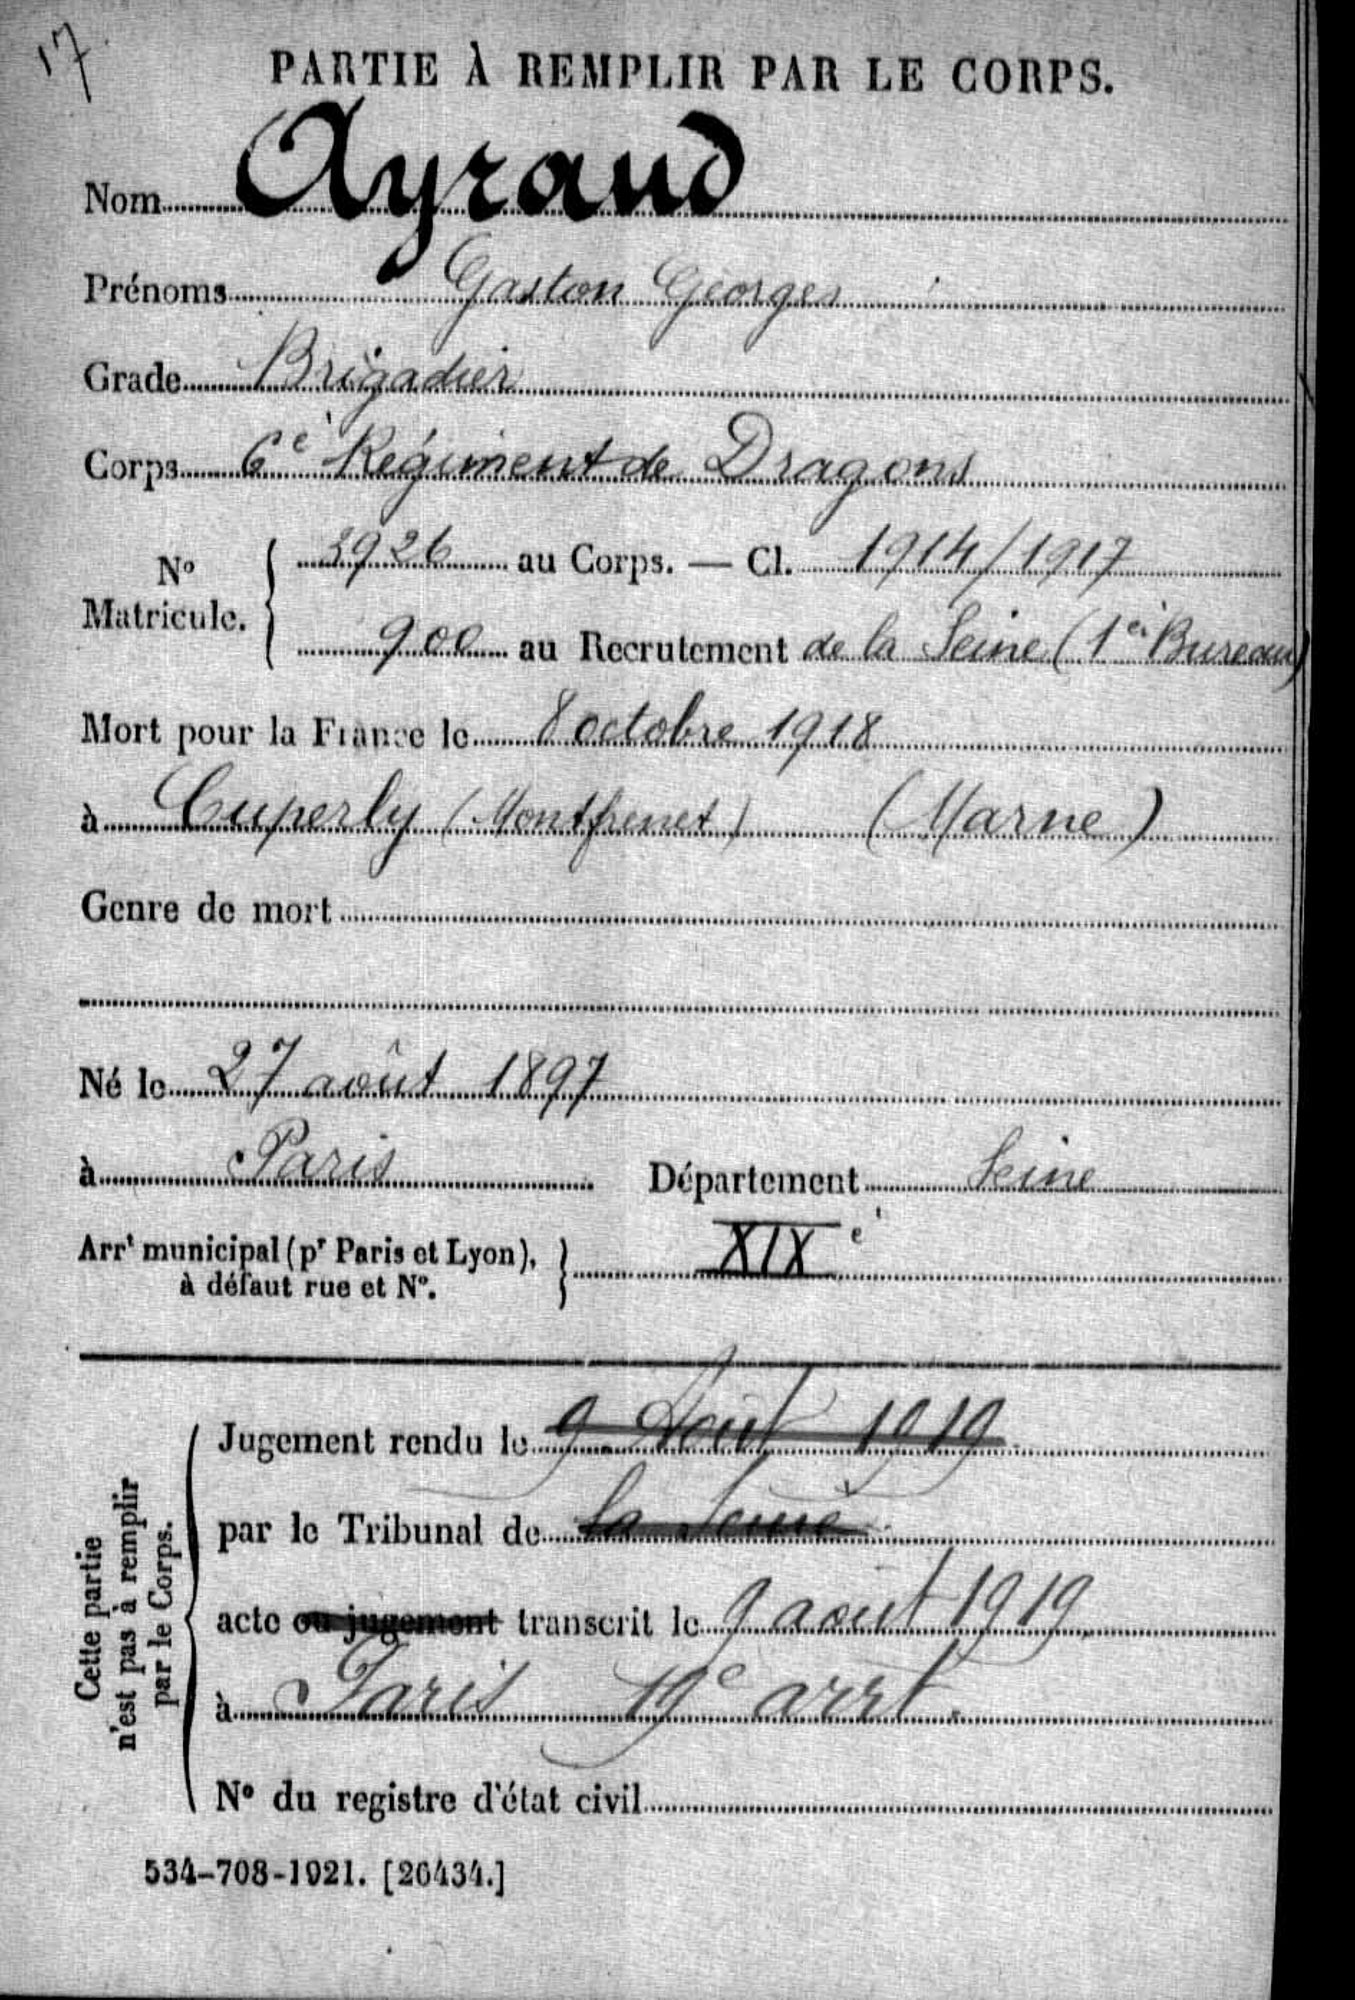 17
PARTIE À REMPLIR PAR LE CORPS.
Nom Ayraud
Prénoms Gaston Georges
Grade Brigadier
Corps 6e Régiment de Dragons
No Matricule. { 3926 au Corps. — Cl. 1914/1917
900 au Recrutement de la Seine (1er Bureau)
Mort pour la France le 8 octobre 1918
à Cuperly (Montfrenet) (Marne)
Genre de mort
Né le 27 août 1897
à Paris Département Seine
Arrt municipal (pr Paris et Lyon), à défaut rue et No. } XIXe
Cette partie n'est pas à remplir par le Corps.
Jugement rendu le 9 Août 1919
par le Tribunal de la Seine
acte ou jugement transcrit le 9 août 1919
à Paris 19e arrt.
No du registre d'état civil
534-708-1921. [26434.]